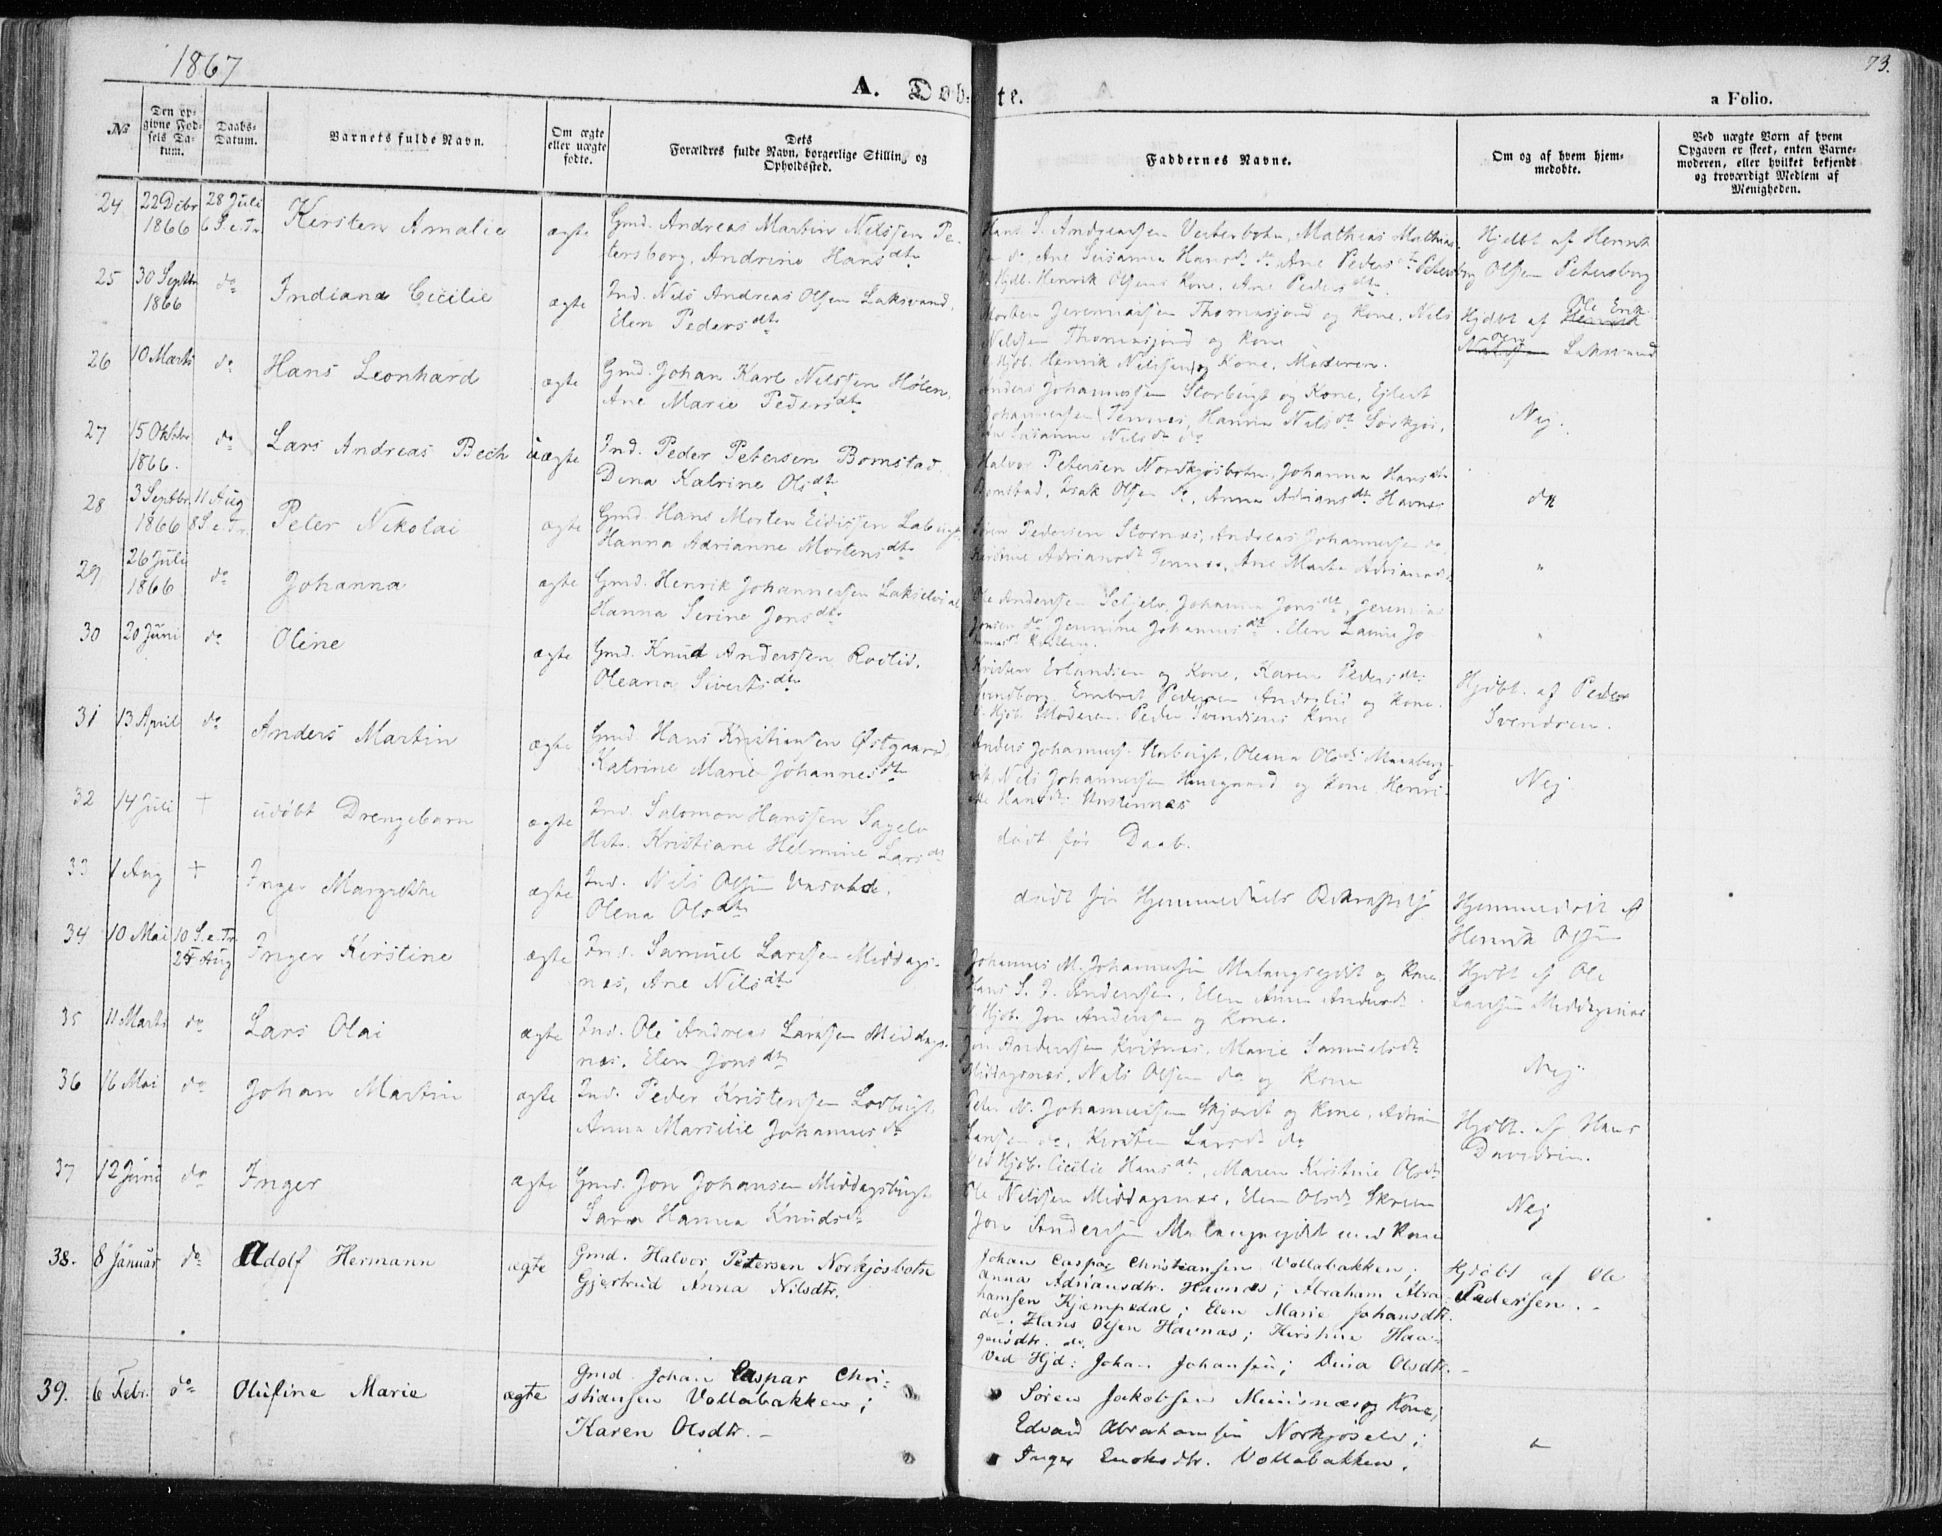 1867
73.
A. Døbte.
a Folio.
No
Den opgivne Fødsels Datum.
Daabs-Datum.
Barnets fulde Navn.
Om ægte eller uægte fødte.
Dets Forældres fulde Navn, borgerlige Stilling og Opholdssted.
Faddernes Navne.
Om og af hvem hjemmedøbte.
Ved uægte Børn af hvem Opgaven er skeet, enten Barnemoderen, eller hvilket bekjendt og troværdigt Medlem af Menigheden.
24 22 Debr 1866 28 Juli 6 S. e. Tr. Kirsten Amalie ægte Gmd. Andreas Martin Nilssen Petersborg, Andrine Hansdtr
Hans S. Andreassen Vesterbotn, Mathias Mathias-
sen do, Ane Susanna Hansdtr do, Ane Pedersdtr Petersborg
V. Hjdb. Henrik Olsens Kone, Ane Pedersdtr
Hjdbt af Henrik Olsen Petersborg
25 30 Septbr 1866 do Indiana Cicilie ægte Ind. Nils Andreas Olsen Laksvand, Elen Pedersdtr
Morten Jeremiassen Thomasjord og Kone, Nils
Nilssen Thomasjord og Kone
V. Hjdb. Henrik Nilssen og Kone, Moderen.
Hjdbt af Ole Erik Laksvand
26 10 Marts do Hans Leonhard ægte Gmd. Johan Karl Nilssen Holen, Ane Marie Pedersdtr
Anders Johannessen Storbugt og Kone, Ejlert
Johannessen Tennes, Hanna Nilsdtr Sørkjos,
Susanna Nilsdtr do
Nej.
27 15 Oktbr 1866. do Lars Andreas Bech ægte Ind. Peder Petersen Bomstad, Dina Katrine Olsdtr
Halvor Petersen Nordkjosbotn, Johanna Hansdtr
Bomstad, Isak Olsen do, Anna Adriansdtr Havnes
do
28 3 Septbr. 1866 11 Aug 8 S. e. Tr. Peter Nikolai ægte Gmd. Hans Morten Eidissen Labugt, Hanna Adrianne Mortensdtr
Søren Pedersen Stornes, Andreas Johannessen do
Kirstine Adriansdtr Tennes, Ane Marta Adriansdtr
"
29 26 Juli 1866 do Johanna ægte Gmd. Henrik Johannessen Lakselvdal, Hanna Serine Jonsdtr
Ole Anderssen Seljelv, Johanna Jonsdtr, Jeremias
Jonsen do, Jennine Johannesdtr. Elen Lavine Jo-
"
30 20 Juni do Oline ægte Gmd. Knud Anderssen Rovlid, Oleana Sivertsdtr
Kristen Erlandsen og Kone, Karen Pedersdtr
Svendborg, Embret Pedersen Andsglid og Kone.
V. Hjdb. Moderen. Peder Svendsens Kone
Hjdbt. af Peder Svendsen.
31 13 April do Anders Martin ægte Gmd. Hans Kristiansen Østgaard, Katrine Marie Johannesdtr
Anders Johanness. Storbugt, Oleana Olsdtr
Nils Johannessen og Kone, Henri-
ette Hansdtr
Nej
32 14 Juli + udøbt Drengebarn ægte Ind. Salomon Hanssen Sagelv, Hst. Kristiane Helmine Larsdtr
død før Daab.
33 1 Aug + Inger Margrethe ægte Ind. Nils Olsen, Olena Olsdtr
død før Hjemmedaabs Bekræftelse
Hjemmedøbt af Henrik Olsen
34 10 Mai 10 S. e. Tr. 25 Aug Inger Kirstine ægte Ind. Samuel Larssen Middagsnes, Ane Nilsdtr
Johannes M. Johannessen Malangseidet og Kone.
Hans S. J. Anderssen, Elen Anna Andersdtr.
V. Hjdb. Jon Anderssen og Kone.
Hjdbt af Ole Larssen Middagsnæs
35 11 Marts do Lars Olai ægte Ind. Ole Andreas Larssen Middagsnæs, Elen Jonsdtr
Jon Anderssen Kvitnæs, Marie Samuelsdtr
Middagsnæs, Nils Olsen do og Kone
Nej
36 16 Mai do Johan Martin ægte Ind. Peder Kristensen Lodbugt, Anna Marselie Johannesdtr
Peter N. Johannessen Skjæret og Kone, Adrian
Larssen do, Kirsten Larsdtr do
Ved Hjdb. Cicilie Hansdtr, Maren Kirstine Olsdtr
Hjdbt. af Hans Davidsen.
37 12 Juni do Inger ægte Gmd. Jon Johansen Middagsbugt, Sara Hanna Knudsdtr
Ole Nilssen Middagsnæs, Elen Olsdtr
Jon Anderssen Malangseidet med Kone
Nej
38. 8 Januar do Adolf Hermann ægte Gmd. Halvor Petersen Norkjosbotn, Gjertrud Anna Nilsdtr.
Johan Caspar Christiansen Vollabakken;
Anna Adriansdtr. Havnæs; Abraham Abra-
hamsen Kjempedal; Elen Marie Johansdtr.
do. Hans Olsen Havnæs; Kirstine Haa-
gensdtr. do.
Ved Hjd: Johan Johansen; Dina Olsdtr.-
Hjdøbt af Ole Pedersen.-
39. 6 Febr. do Olufine Marie ægte Gmd. Johan Caspar Christiansen Vollabakken; Karen Olsdtr.-
Søren Jakobsen og Kone;
Edvard Abrahamsen Norkjoselv;
Inger Enoksdtr. Vollabakken.